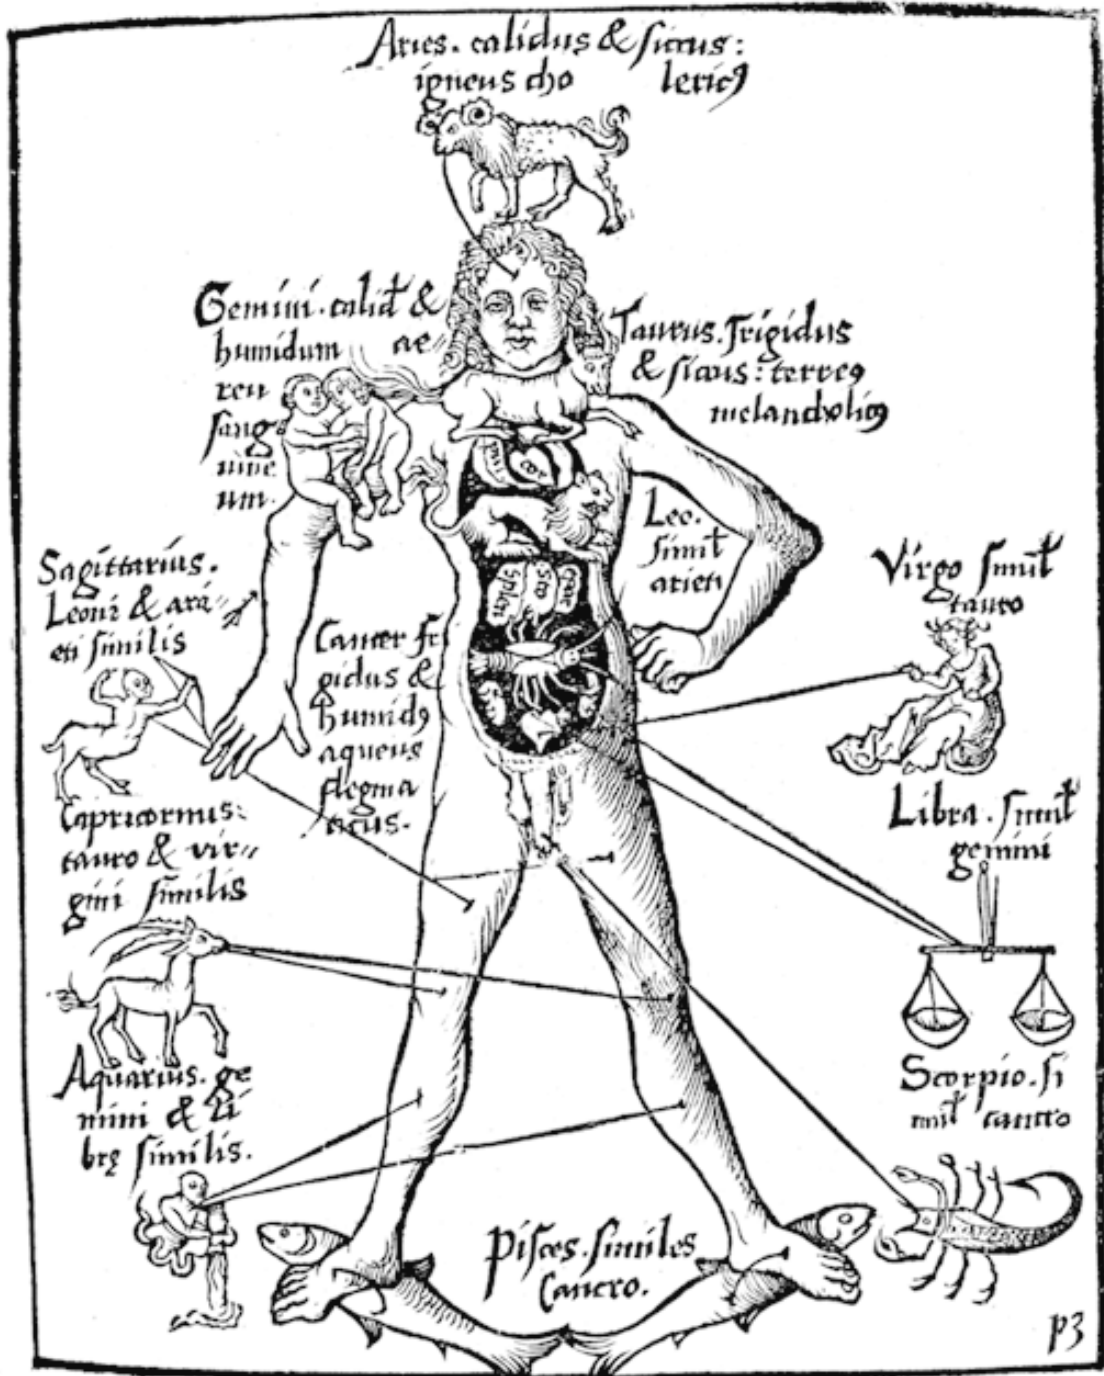 Aries. calidus & siccus:
igneus cho leric9
Gemini. calid &
humidum ae„
reu
sang
uine
um.
Taurus. frigidus
& siccus: terre9
melancholic9
cor
Leo.
simil
arieti
Virgo simil
tauro
Sagittarius.
Leoni & ari„
eti similis
Cancer fri
gidus &
humid9
aqueus
flegma
ticus.
splen
sto
epar
Capricornus:
tauro & vir„
gini similis
Libra. simil
gemini
Aquarius. ge
mini & li
brę similis.
Scorpio. si
mil cancro
Pisces. similes
Cancro.
p3